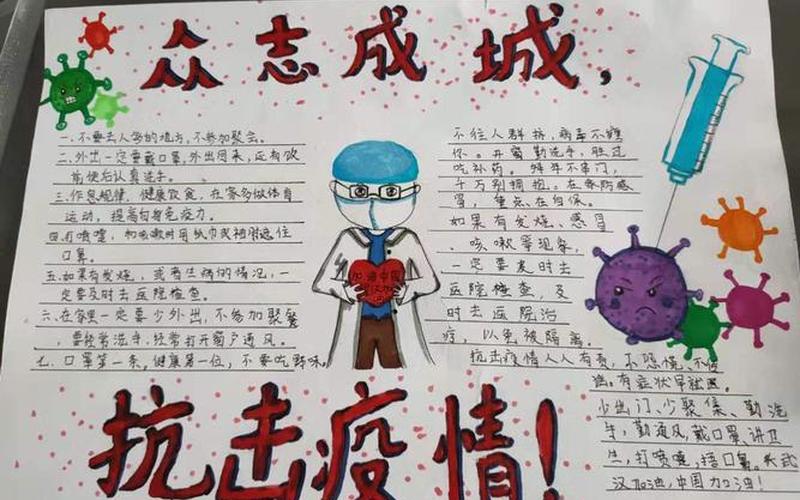 众志成城,
一、不要去人多的地方,不参加聚会。
二、外出一定要戴口罩,外出回来,还有饮
前便后认真洗手。
三、作息规律,健康饮食,在家多做体育
运动,提高自身免疫力。
四、打喷嚏,和咳嗽时用纸巾或袖肘遮住
口鼻。
五、如果有发烧,或者生病的情况,一
定要及时去医院检查。
六、在家里一定要少外出,不参加聚餐,
要经常洗手,经常打开窗户通风。
七、口罩第一条,健康第一位,不要吃野味。
加油中国
武汉加油
不往人群挤,病毒不缠
你。开窗勤洗手,胜过
吃补药。拜年不串门,
千万别拥抱。在家防感
冒,重点在自保。
如果有发烧、感冒
、咳嗽等现象,
一定要及时去
医院检查,及
时去医院治
疗,以免被隔离。
抗击疫情人人有责,不恐慌、不传
谣。有症状早就医。
少出门、少聚集、勤洗
手,勤通风,戴口罩、讲卫
生,打喷嚏,捂口鼻。天武
汉加油,中国加油!
抗击疫情!